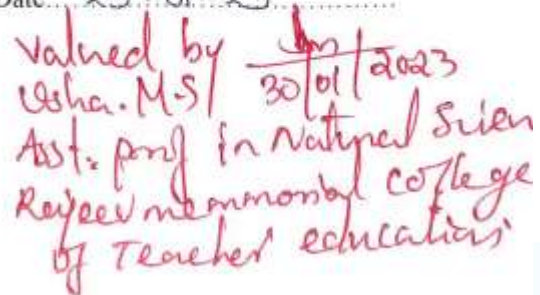 Date....25...01...23..............
Valued by
Usha. M.S 30/01/2023
Asst. prof in Natural Scien
Rajeev memmorial college
of Teacher education